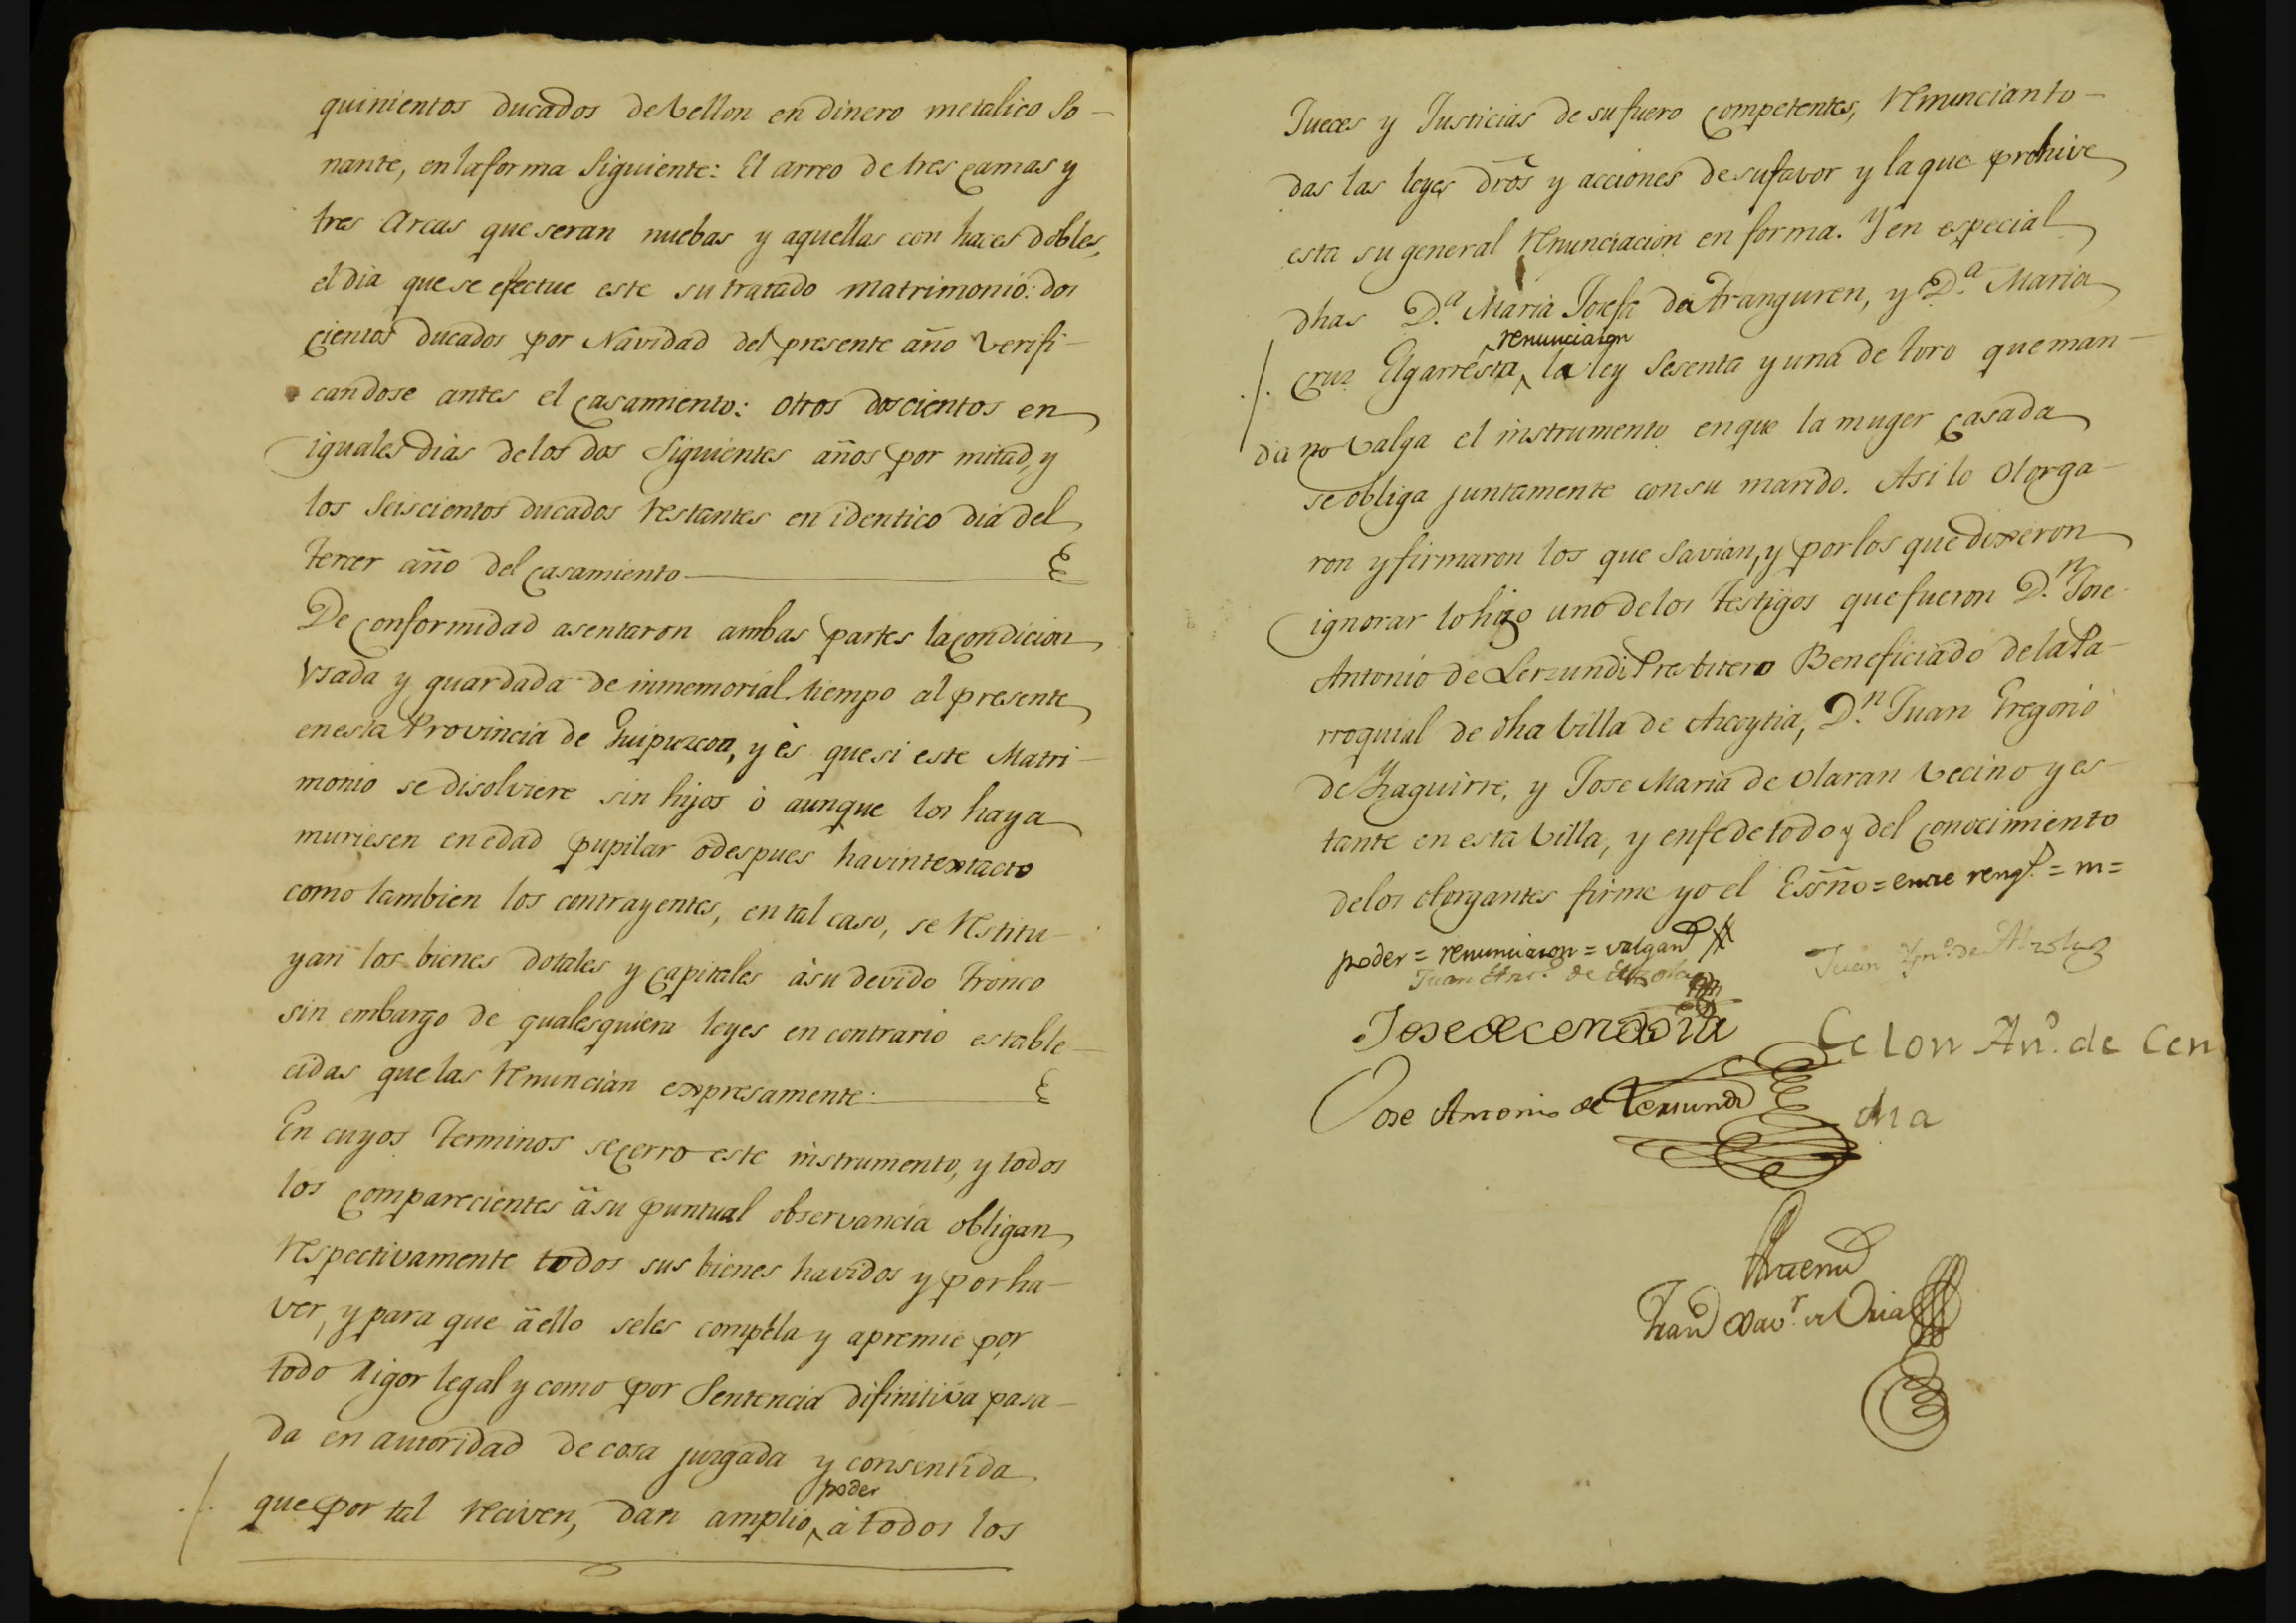 quinientos ducados de Vellon en dinero metalico So-
nante, en la forma Siguiente: El arreo de tres camas y
tres Arcas que seran nuebas y aquellas con haces dobles,
el dia que se efectue este su tratado matrimonio: dos
cientos ducados por Navidad del presente año Verifi-
candose antes el casamiento: otros doscientos en
iguales dias de los dos Siguientes años por mitad, y
los Seiscientos ducados restantes en identico dia del
tercer año del casamiento
De conformidad asentaron ambas partes la condicion
Vsada y guardada de inmemorial tiempo al presente
en esta Provincia de Guipuzcoa, y es que si este Matri-
monio se disolviere sin hijos ò aunque los haya
muriesen en edad pupilar ò despues havintextacto
como tambien los contrayentes, en tal caso, se restitu-
yan los bienes dotales y capitales à su devido tronco
sin embargo de qualesquiera leyes en contrario estable-
cidas que las renuncian expresamente.
En cuyos terminos se cerro este instrumento, y todos
los comparecientes à su puntual observancia obligan
respectivamente todos sus bienes havidos y por ha-
ver, y para que à ello seles compela y apremie por
todo rigor legal y como por Sentencia difinitiva pasa-
da en autoridad de cosa juzgada y consentida
poder
que por tal reciven, dan amplio ^ à todos los
Jueces y Justicias de su fuero competentes, renuncian to-
das las leyes dr̃os y acciones de su favor y la que prohive
esta su general renunciacion en forma. Y en especial
dhas D.ª Maria Josefa de Aranguren, y D.ª Maria
renunciaron
Cruz Elgarresta ^ la ley Sesenta y una de toro que man-
da no Valga el instrumento en que la muger casada
se obliga juntamente con su marido. Asi lo otorga-
ron y firmaron los que Savian, y por los que dixeron
ignorar lo hizo uno de los testigos que fueron D.n Jose
Antonio de Lerzundi Presbitero Beneficiado de la Pa-
rroquial de dha Villa de Azcoytia, D.n Juan Gregorio
de Yzaguirre, y Jose Maria de Olaran Vecino y es-
tante en esta Villa, y en fe de todo y del conocimiento
de los otorgantes firme yo el Essño = entre rengs. = m =
poder = renunciaron = valgan
Juan Ant.o de
Juan Yn.o de
Jose de cendoia
Celon An.o de Cen
doia
Jose Antonio de Lerzundi
Antemi
Fran.co Xav.r de Oria